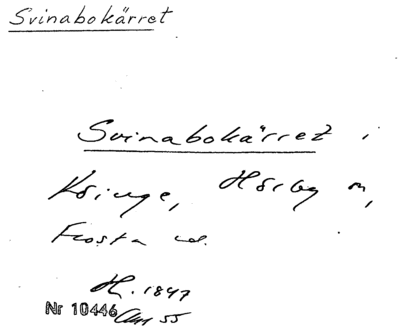 Svinabokärret
Svinabokärret i
Kringe, Hörby sn,
Frosta hd.
H. 1847
Nr 10446 55